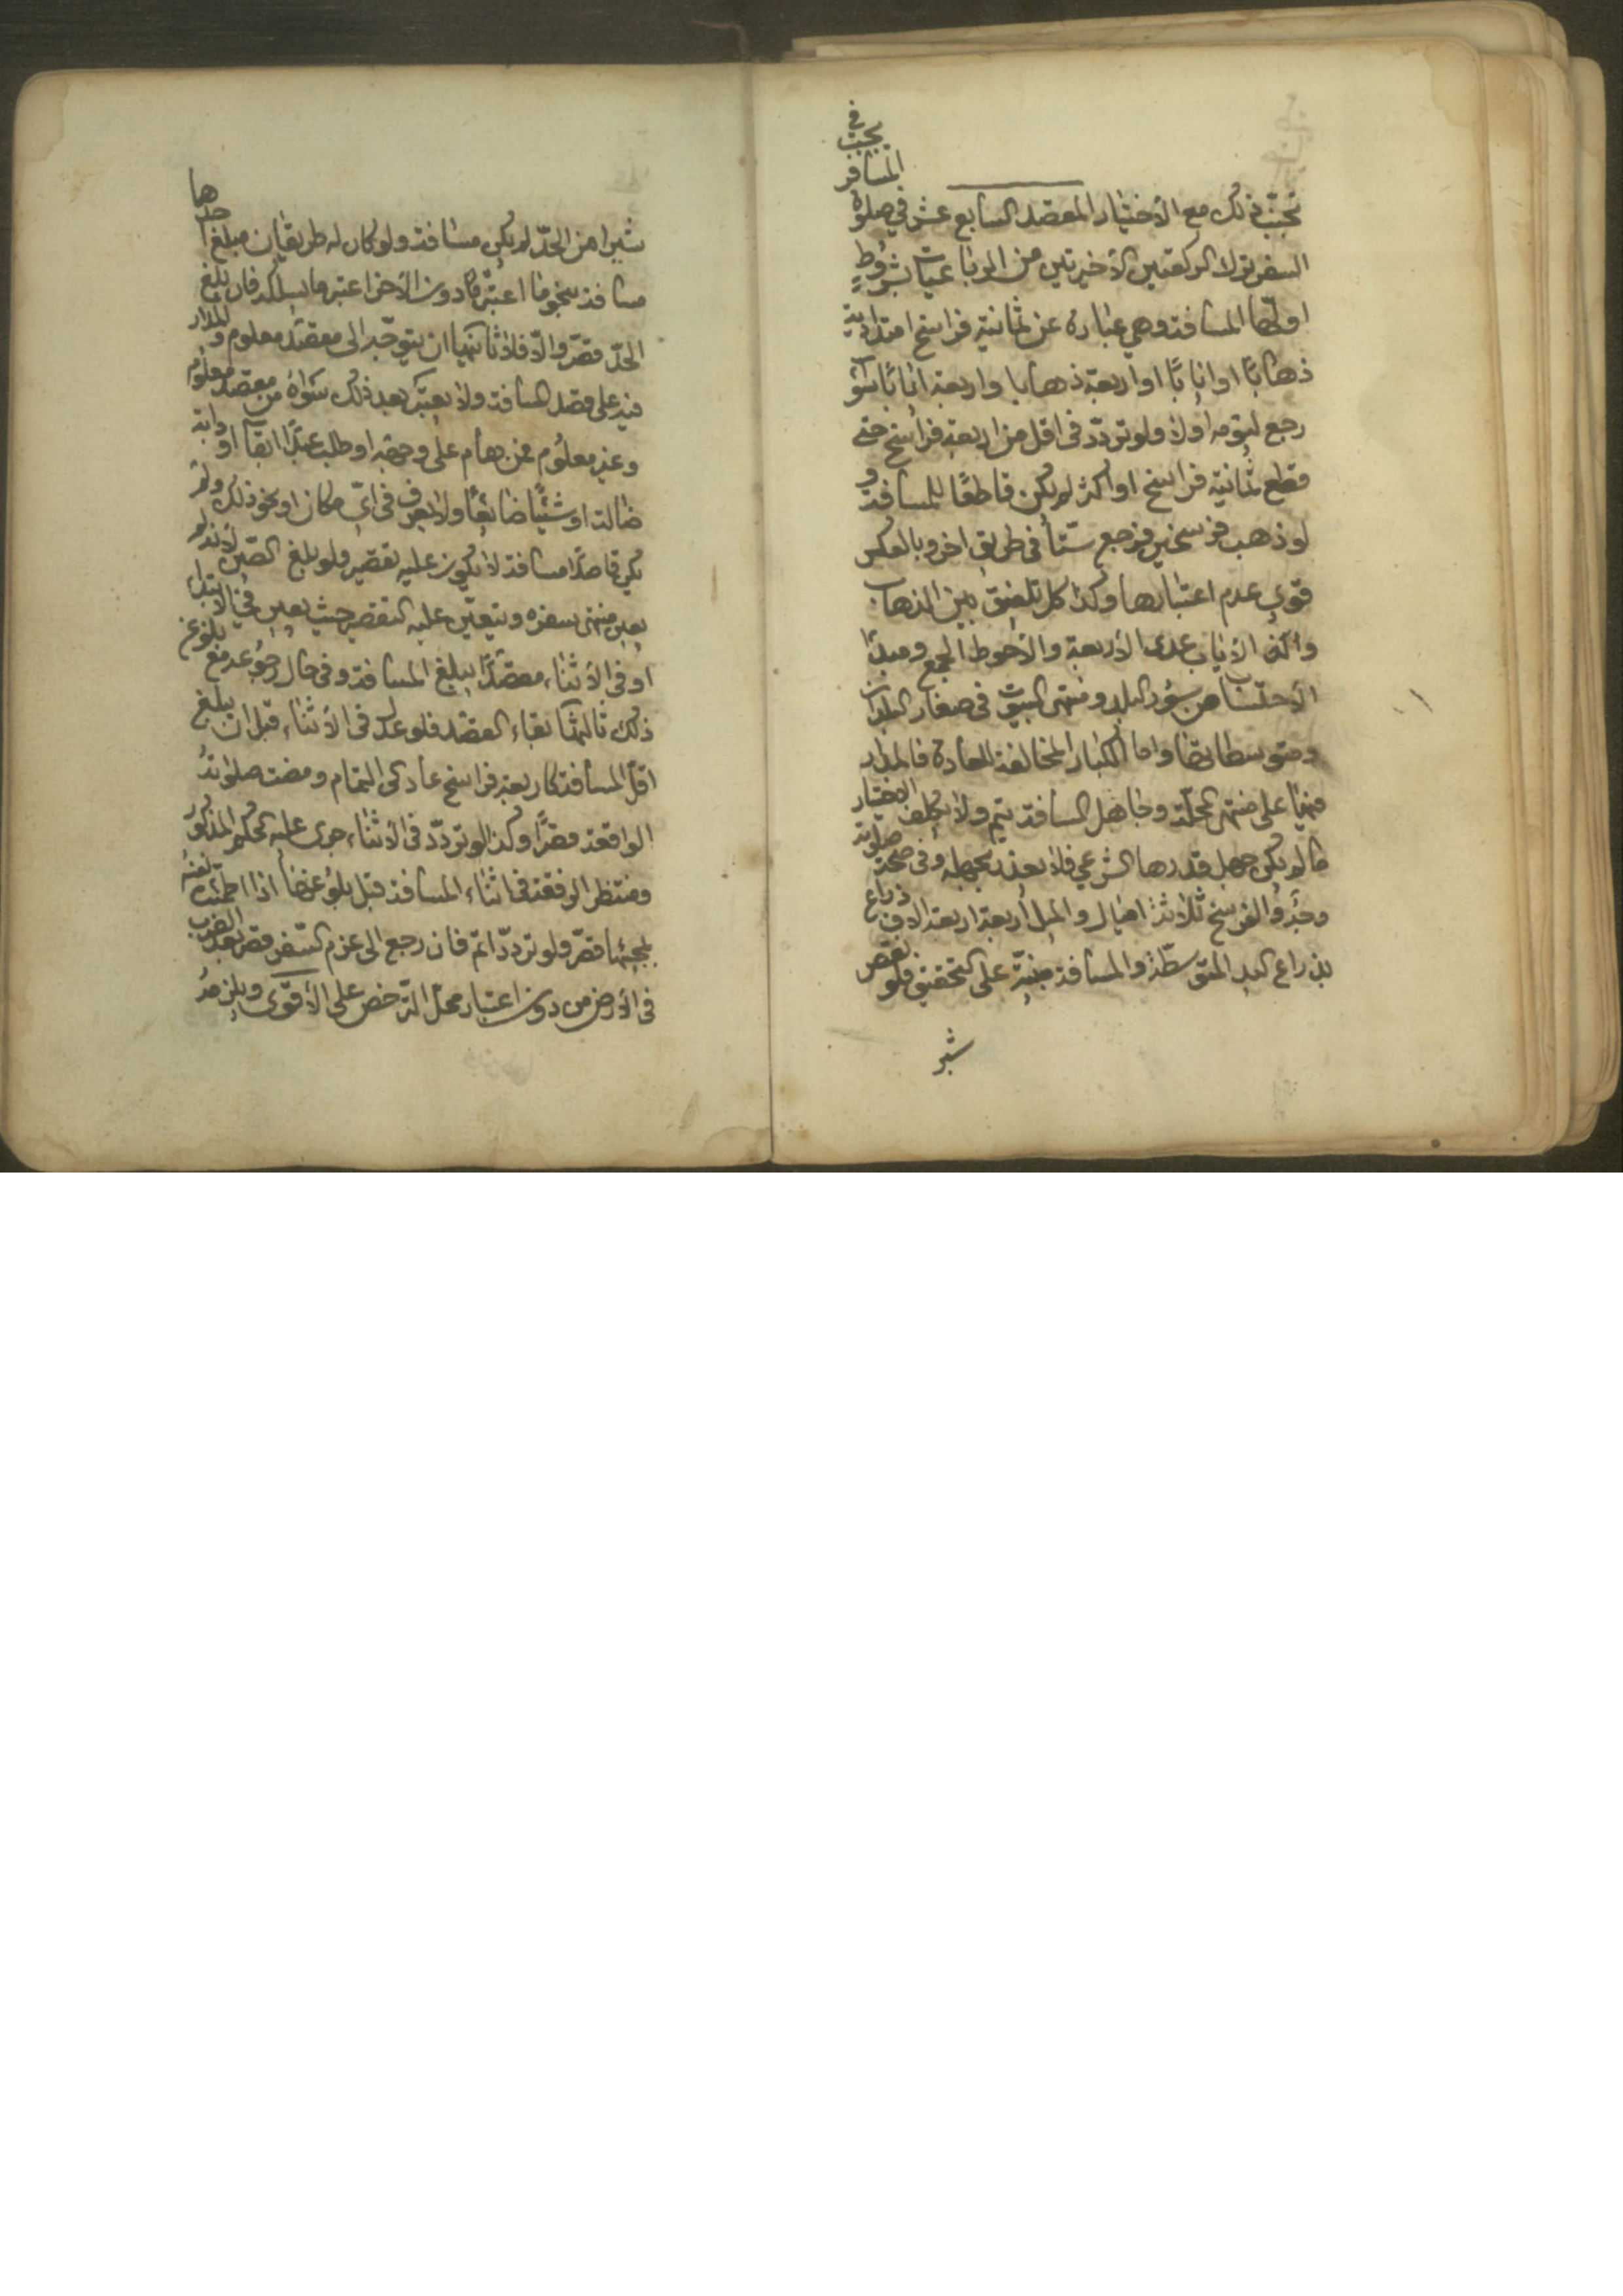 يجب في
المسافر
تجب ذلك مع الأختيار المقصد السابع عشر في صلوة
السفر ترك الركعتين الأخيرتين من الرباعيات بشروط
اولها المسافة وهي عبارة عن ثمانية فراسخ امتدادية
ذهابًا او ايابًا او اربعة ذهابا واربعة ايابًا سوآء
رجع ليومه اولا ولو تردّد في اقل من اربعة فراسخ حتى
قطع ثمانية فراسخ او اكثر لم يكن قاطعًا للمسافة و
لو ذهب فرسخين فرجع ستّا في طريق اخر وبالعكس
قوي عدم اعتبارها وكذا كل تلفيق بين الذهاب
والاياب عدى الأربعة والأحوط الجمع ومبدأ
الأحتساب من سور البلد ومنتهى البيوت في صغار البلدان
ومتوسطاتها واما الكبار المخالفة للعادة فالمدار
فيها على منتهى المحلّة وجاهل المسافة يتم ولا يكلف الاختبار
ما لم يكن جهل قدرها الشرعي فلا يعذر بجهله وفي صحة صلوته
وجه والفرسخ ثلاثة اميال والميل اربعة اربعة الاف ذراع
بذراع اليد المتوسطة والمسافة مبنيّة على التحقيق فلو نقص
شبر
شبرا من الحدّ لم يكن مسافة ولو كان له طريقان مبلغ احدها
مسافة نحوما اعتبر ما دون الأخر اعتبر ما يسلكه فان بلغ
الحدّ قصّر والّا فلا ثانيها ان يتوجه الى مقصد معلوم والمدار
فيه على قصد المسافة ولا يعتبر بعد ذلك سواه من مقصد معلوم
وغير معلوم فمن هام على وجهه او طلب عبدًا ابقا او دابة
ضالة او شيئًا ضايعًا ولا يعرف في ايّ مكان او نحو ذلك ولم
يكن قاصدًا مسافة لا يكون عليه تقصير ولو بلغ الصين لانه لم
يعين منتهى سفره ويتعيّن عليه التقصير حيث يعين في الابتداء
او في الأثناء مقصدًا يبلغ المسافة وفي حال رجوعه مع بلوغ
ذلك ثالثها بقاء القصد فلو عدل في الأثناء قبل ان يبلغ
اقلّ المسافة كاربعة فراسخ عاد الى التمام ومضت صلوته
الواقعة قصرًا وكذا لو تردّد في الأثناء جرى عليه الحكم المذكور
ومنتظر الرفقة في اثناء المسافة قبل بلوغها اذا اطمئنت نفسه
بمجيئها قصّر ولو تردّد اتم فان رجع الى عزم السفر قصر بعد الضرب
في الأرض من دون اعتبار محلّ الترخص على الأقوى ويلزمه